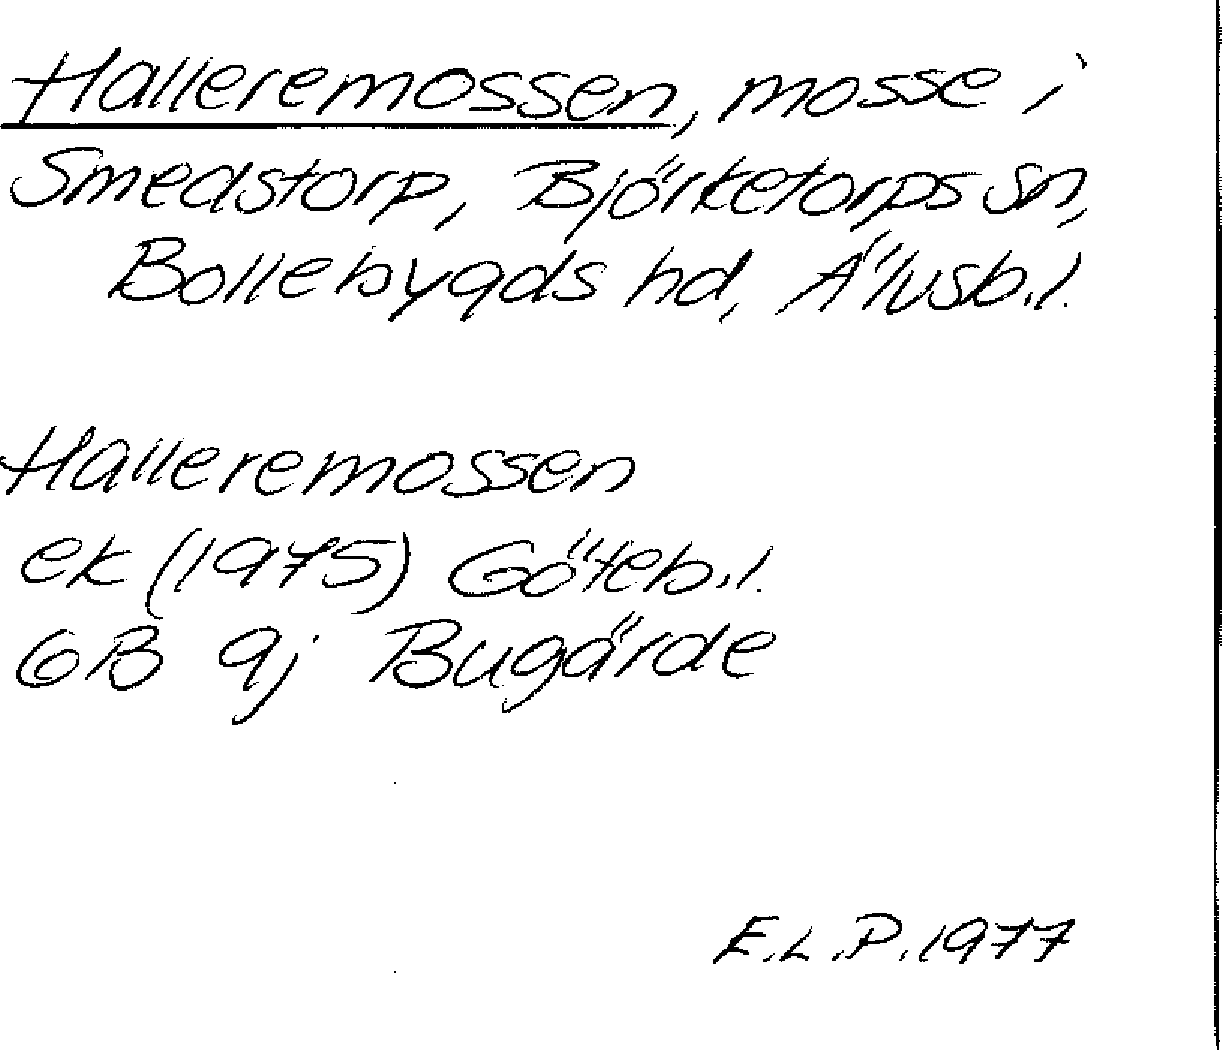 Halleremossen, mosse i
Smedstorp, Björketorps sn,
Bollebygds hd, Älvsb.l.
Halleremossen
ek (1975) Göteb.l.
6B 9j Bugärde
E.L.P. 1977